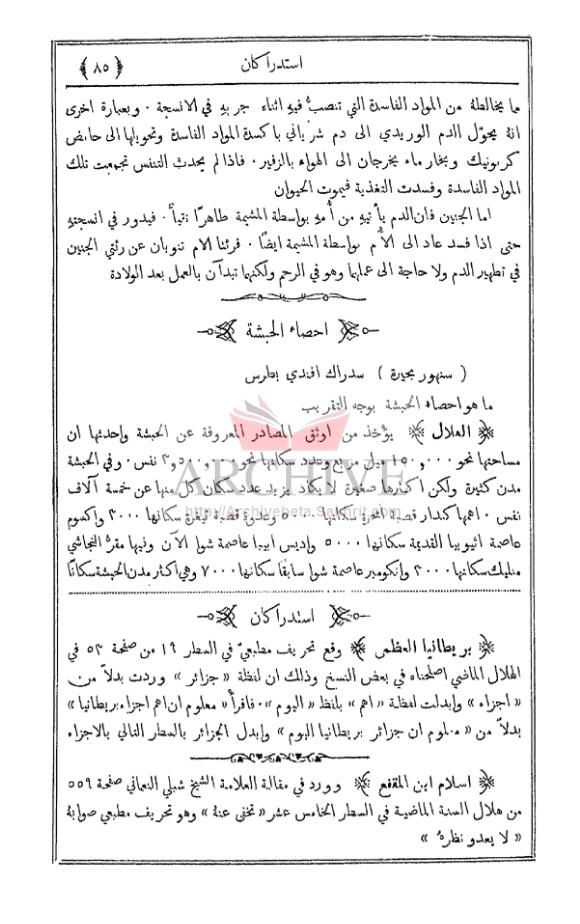 استدراكان
﴿ ٨٥ ﴾
ما يخالطه من المواد الفاسدة التي تنصب فيه اثناء جريه في الانسجة · وبعبارة اخرى
انه يحوّل الدم الوريدي الى دم شرياني باكسدة المواد الفاسدة وتحويلها الى حامض
كربونيك وبخار ماء يخرجان الى الهواء بالزفير · فاذا لم يحدث التنفس تجمعت تلك
المواد الفاسدة وفسدت التغذية فيموت الحيوان
اما الجنين فان الدم يأتيه من أمه بواسطة المشيمة طاهرًا نقيًا · فيدور في انسجته
حتى اذا فسد عاد الى الأم بواسطة المشيمة ايضًا · فرئتا الام تنوبان عن رئتي الجنين
في تطهير الدم ولا حاجة الى عملهما وهو في الرحم ولكنهما تبدآن بالعمل بعد الولادة
احصاء الحبشة
( سنهور بحيرة ) سدراك افندي بطرس
ما هو احصاء الحبشة بوجه التقريب
﴿ الهلال ﴾ يؤخذ من اوثق المصادر المعروفة عن الحبشة واحدثها ان
مساحتها نحو ١٥٠٬٠٠٠ ميل مربع وعدد سكانها نحو ٣٬٥٠٠٬٠٠٠ نفس · وفي الحبشة
مدن كثيرة ولكن اكثرها صغيرة لا يكاد يزيد عدد سكان كل منها عن خمسة آلاف
نفس · اهمها كندار قصبة امحرة سكانها ٥٠٠٠ وعدوة قصبة تيغرة سكانها ٣٠٠٠ واكسوم
عاصمة اثيوبيا القديمة سكانها ٥٠٠٠ واديس ابيبا عاصمة شوا الآن وفيها مقرّ النجاشي
منليك سكانها ٣٠٠٠ وانكوبر عاصمة شوا سابقًا سكانها ٧٠٠٠ وهي اكثر مدن الحبشة سكانًا
ARCHIVE
http://Archivebeta.Sakhrit.com
استدراكان
﴿ بريطانيا العظمى ﴾ وقع تحريف مطبعيّ في السطر ١٩ من صفحة ٥٣ في
الهلال الماضي اصلحناه في بعض النسخ وذلك ان لفظة « جزائر » وردت بدلاً من
« اجزاء » وابدلت لفظة « اهم » بلفظ « اليوم » · فاقرأ « معلوم ان اهم اجزاء بريطانيا »
بدلاً من « معلوم ان جزائر بريطانيا اليوم » وابدل الجزائر بالسطر التالي بالاجزاء
﴿ اسلام ابن المقفع ﴾ وورد في مقالة العلامة الشيخ شبلي النعماني صفحة ٥٥٩
من هلال السنة الماضية في السطر الخامس عشر « تخفى عنه » وهو تحريف مطبعي صوابه
« لا يعدو نظره »